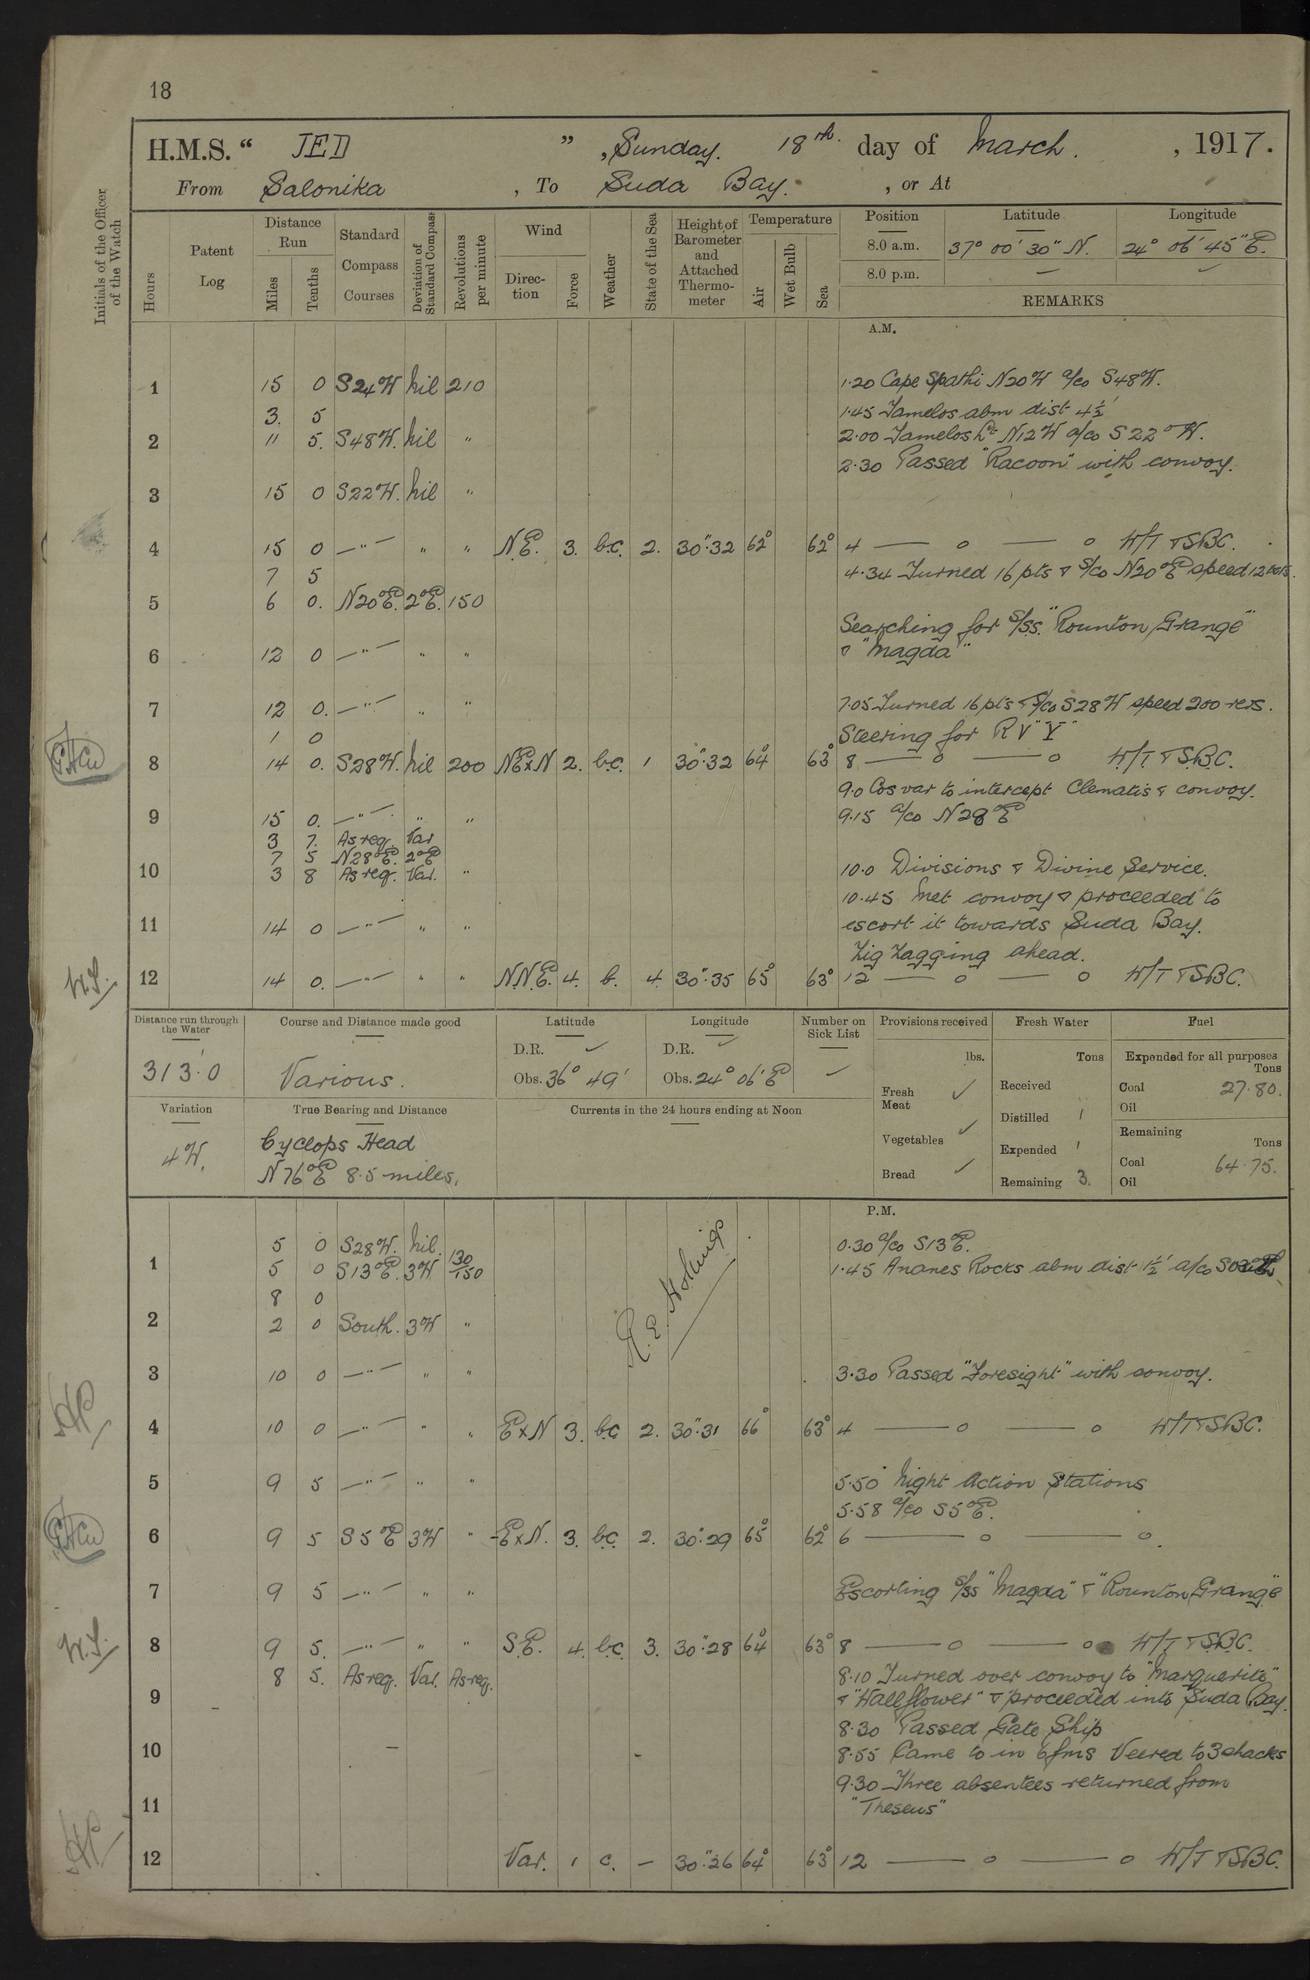 18
H.M.S. “ JED ” , Sunday. 18th day of March. , 1917.
From Salonika , To Suda Bay. , or At
Initials of the Officer of the Watch
Hours
Patent Log
Distance Run
Miles
Tenths
Standard Compass Courses
Deviation of Standard Compass
Revolutions per minute
Wind
Direction
Force
Weather
State of the Sea
Height of Barometer and Attached Thermometer
Temperature
Air
Wet Bulb
Sea
Position Latitude Longitude
8.0 a.m. 37° 00' 30" N. 24° 06' 45" E.
8.0 p.m. — ✓
REMARKS
A.M.
1 15 0 S24W nil 210 1.20 Cape Spathi N20W a/co S48W.
3. 5 1.45 Tamelos abm dist 4½'
2 11 5. S48W. nil " 2.00 Tamelos Lt N12W a/co S22°W.
2.30 Passed "Racoon" with convoy.
3 15 0 S22W. nil "
4 15 0 —"— " " N.E. 3. b.c. 2. 30".32 62° 62° 4 — o — o W/T & SBC.
7 5 4.34 Turned 16 pts & S/co N20°E speed 12 knots.
5 6 0. N20°E. 2°E. 150
Searching for S/SS. "Rounton Grange"
6 12 0 —"— " " & "Magda"
7 12 0. —"— " " 7.05 Turned 16 pts & S/co S28W speed 200 revs.
1 0 Steering for RV "Y"
8 14 0. S28W. nil 200 NExN 2. b.c. 1 30".32 64° 63° 8 — o — o W/T & S.B.C.
9.0 Cos var to intercept Clematis & convoy.
9 15 0. —"— " " 9.15 a/co N28°E
3 7. As req. Var
7 5 N28°E. 2°E
10 3 8 As req. Var. " 10.0 Divisions & Divine Service.
10.45 Met convoy & proceeded to
11 14 0 —"— " " escort it towards Suda Bay.
Zig Zagging ahead.
W.S. 12 14 0. —"— " " N.N.E. 4. b. 4. 30".35 65° 63° 12 — o — o W/T & SBC.
Distance run through the Water
313.0
Course and Distance made good
Various.
Latitude
D.R. ✓
Obs. 36° 49'
Longitude
D.R. ✓
Obs. 24° 06' E
Number on Sick List
✓
Provisions received
lbs.
Fresh Meat ✓
Vegetables ✓
Bread ✓
Fresh Water
Tons
Received
Distilled 1
Expended 1
Remaining 3.
Fuel
Expended for all purposes
Tons
Coal 27.80.
Oil
Remaining
Tons
Coal 64.75.
Oil
Variation
4W.
True Bearing and Distance
Cyclops Head
N76°E 8.5 miles.
Currents in the 24 hours ending at Noon
P.M.
5 0 S28W. nil. 0.30 a/co S13°E.
1 5 0 S13°E. 3W 130/150 1.45 Ananes Rocks abm dist 1½' a/co South
8 0
2 2 0 South. 3W "
3 10 0 —"— " " 3.30 Passed "Foresight" with convoy.
4 10 0 —"— " " ExN 3. b.c 2. 30".31 66° 63° 4 — o — o W/T & SBC.
5 9 5 —"— " " 5.50 Night Action Stations
5.58 a/co S5°E.
6 9 5 S5°E 3W " ExN. 3. b.c. 2. 30".29 65° 62° 6 — o — o.
7 9 5 —"— " " Escorting S/SS "Magda" & "Rounton Grange"
W.S. 8 9 5. —"— " " S.E. 4. b.c. 3. 30".28 64° 63° 8 — o — o W/T & S.B.C.
8 5. As req. Var. As req. 8.10 Turned over convoy to "Marguerite"
9 & "Wallflower" & proceeded into Suda Bay.
8.30 Passed Gate Ship
10 8.55 Came to in 6 fms Veered to 3 shacks
9.30 Three absentees returned from
11 "Theseus"
12 Var. 1 c. — 30".26 64° 63° 12 — o — o W/T & SBC.